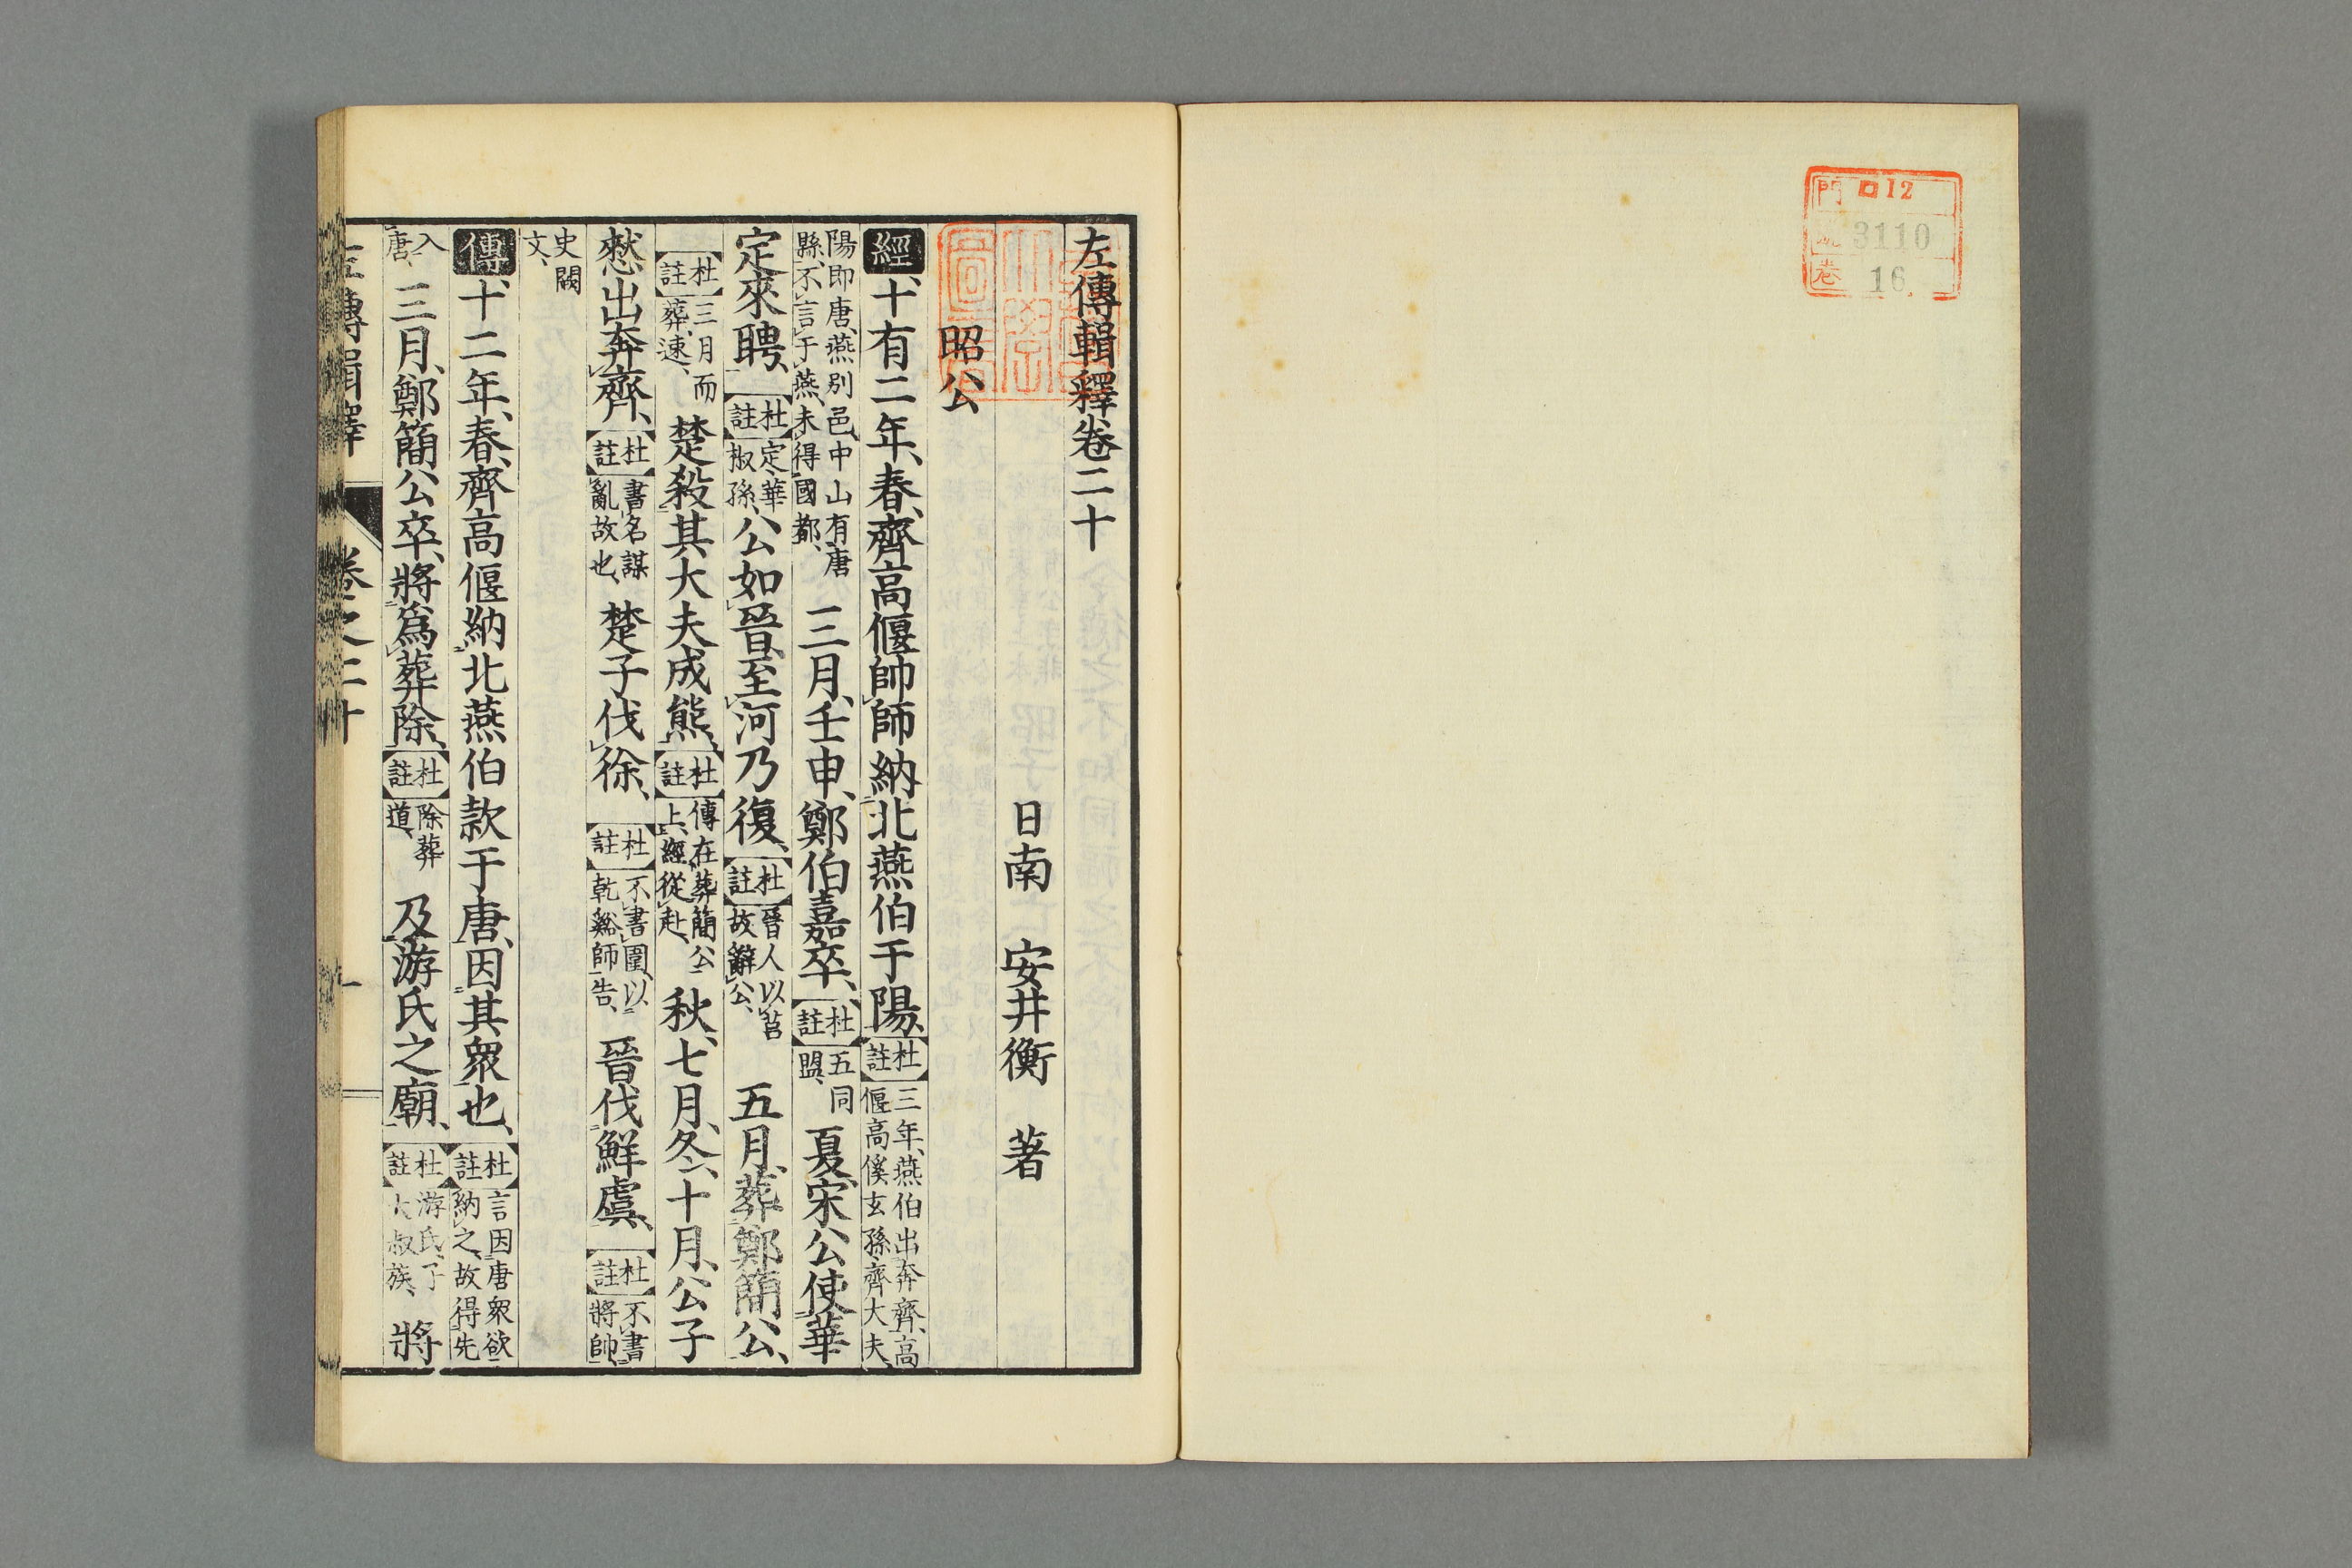 門 ロ12
號 3110
卷 16
左傳輯釋卷二十
日南 安井衡 著
昭公
經、十有二年、春、齊高偃帥師納北燕伯于陽、杜註三年、燕伯出奔齊、高偃高傒玄孫、齊大夫、
陽即唐、燕別邑、中山有唐縣、不言于燕、未得國都、三月、壬申、鄭伯嘉卒、杜註五同盟、夏、宋公使華
定來聘、杜註定、華椒孫、公如晉、至河乃復、杜註晉人以莒故辭公、五月、葬鄭簡公、
杜註三月而葬、速、楚殺其大夫成熊、杜註傳在葬簡公上、經從赴、秋、七月、冬、十月、公子
憖出奔齊、杜註書名謀亂故也、楚子伐徐、杜註不書圍、以乾谿師告、晉伐鮮虞、杜註不書將帥、
史闕文、
傳、十二年、春、齊高偃納北燕伯款于唐、因其衆也、杜註言因唐衆欲納之、故得先
入唐、三月、鄭簡公卒、將爲葬除、杜註除葬道、及游氏之廟、杜註游氏、子大叔族、將
左傳輯釋 卷之二十 一